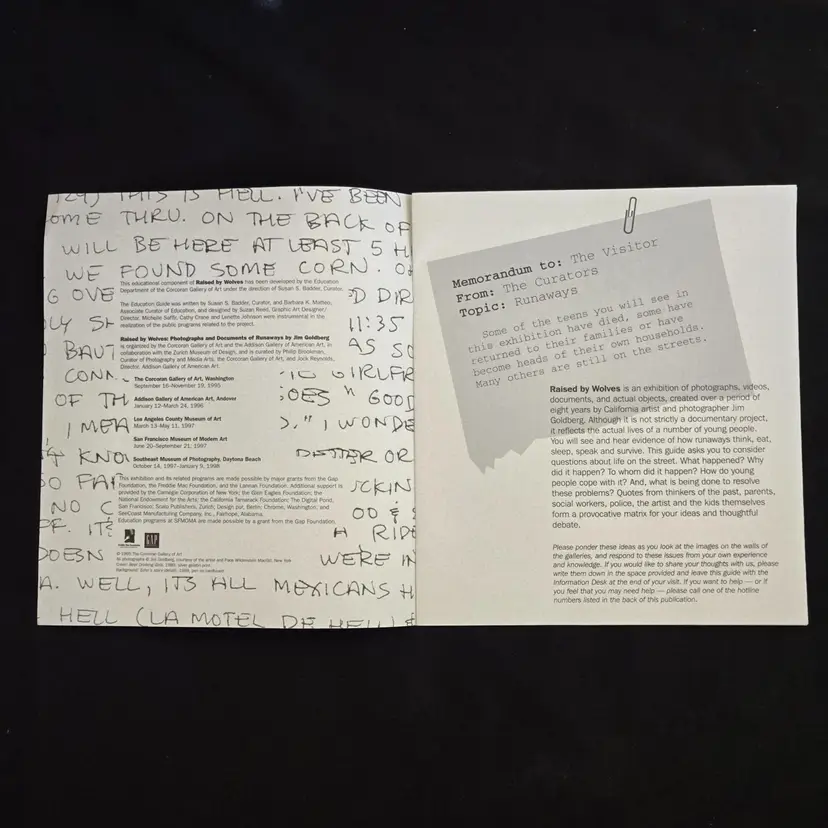 THIS IS HELL. I'VE BEEN
OME THRU. ON THE BACK OF
WILL BE HERE AT LEAST 5 H
WE FOUND SOME CORN.
G OVE
D DIR
LY SH
11:35
BAUT
AS SO
CONN.
GIRLFR
OF TH
OES " GOOD
I MEA
," I WONDE
KNOW
BETTER OR
SO FAR
NO C
OO &
PF. IT'S
A RIDE
DOESN
WERE IN
A. WELL, IT'S ALL MEXICANS H
HELL (LA MOTEL DE HELL) &
This educational component of Raised by Wolves has been developed by the Education
Department of the Corcoran Gallery of Art under the direction of Susan S. Badder, Curator.
The Education Guide was written by Susan S. Badder, Curator, and Barbara K. Matteo,
Associate Curator of Education, and designed by Suzan Reed, Graphic Art Designer/
Director; Michelle Saffir, Cathy Crane and Lynette Johnson were instrumental in the
realization of the public programs related to the project.
Raised by Wolves: Photographs and Documents of Runaways by Jim Goldberg
is organized by the Corcoran Gallery of Art and the Addison Gallery of American Art, in
collaboration with the Zurich Museum of Design, and is curated by Philip Brookman,
Curator of Photography and Media Arts, the Corcoran Gallery of Art, and Jock Reynolds,
Director, Addison Gallery of American Art.
The Corcoran Gallery of Art, Washington
September 16–November 19, 1995
Addison Gallery of American Art, Andover
January 12–March 24, 1996
Los Angeles County Museum of Art
March 13–May 11, 1997
San Francisco Museum of Modern Art
June 20–September 21, 1997
Southeast Museum of Photography, Daytona Beach
October 14, 1997–January 9, 1998
This exhibition and its related programs are made possible by major grants from the Gap
Foundation, the Freddie Mac Foundation, and the Lannan Foundation. Additional support is
provided by the Carnegie Corporation of New York; the Glen Eagles Foundation; the
National Endowment for the Arts; the California Tamarack Foundation; The Digital Pond,
San Francisco; Scalo Publishers, Zurich; Design pur, Berlin; Chrome, Washington; and
SeeCoast Manufacturing Company, Inc., Fairhope, Alabama.
Education programs at SFMOMA are made possible by a grant from the Gap Foundation.
GAP
© 1995 The Corcoran Gallery of Art
Memorandum to: The Visitor
From: The Curators
Topic: Runaways
Some of the teens you will see in
this exhibition have died, some have
returned to their families or have
become heads of their own households.
Many others are still on the streets.
Raised by Wolves is an exhibition of photographs, videos,
documents, and actual objects, created over a period of
eight years by California artist and photographer Jim
Goldberg. Although it is not strictly a documentary project,
it reflects the actual lives of a number of young people.
You will see and hear evidence of how runaways think, eat,
sleep, speak and survive. This guide asks you to consider
questions about life on the street. What happened? Why
did it happen? To whom did it happen? How do young
people cope with it? And, what is being done to resolve
these problems? Quotes from thinkers of the past, parents,
social workers, police, the artist and the kids themselves
form a provocative matrix for your ideas and thoughtful
debate.
Please ponder these ideas as you look at the images on the walls of
the galleries, and respond to these issues from your own experience
and knowledge. If you would like to share your thoughts with us, please
write them down in the space provided and leave this guide with the
Information Desk at the end of your visit. If you want to help — or if
you feel that you may need help — please call one of the hotline
numbers listed in the back of this publication.